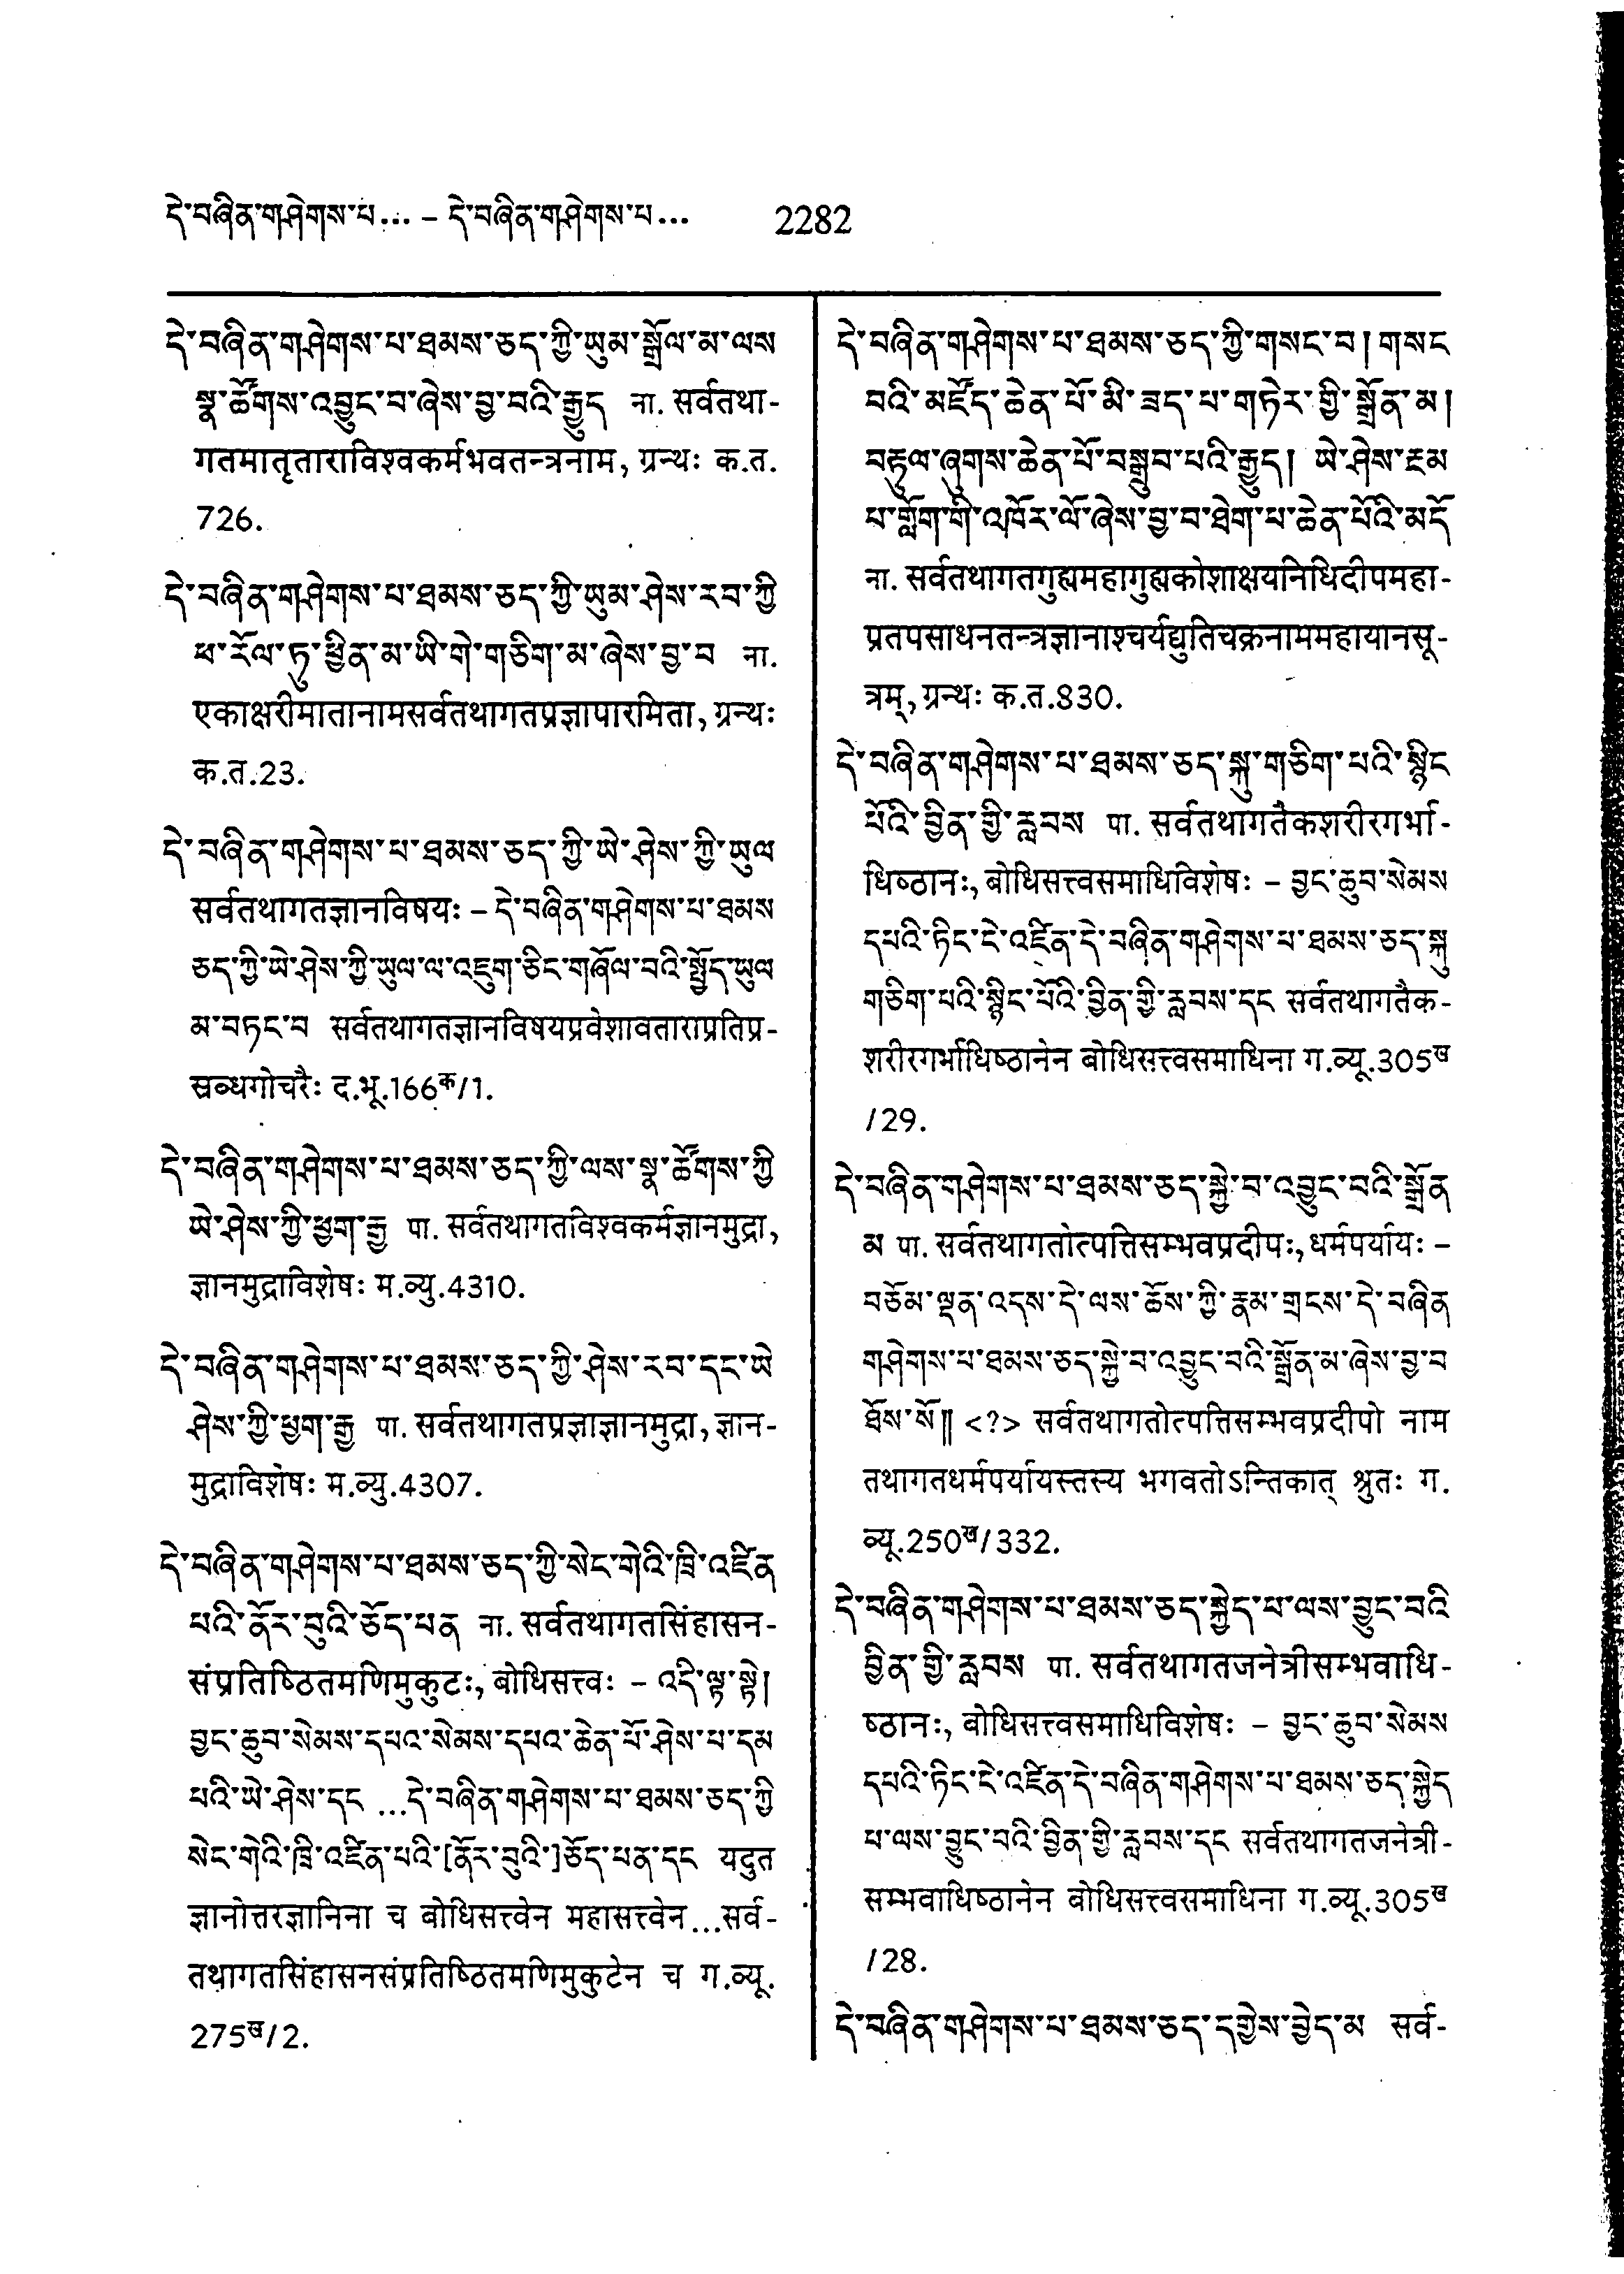 དེ་བཞིན་གཤེགས་པ... – དེ་བཞིན་གཤེགས་པ... 2282
དེ་བཞིན་གཤེགས་པ་ཐམས་ཅད་ཀྱི་ཡུམ་སྒྲོལ་མ་ལས
སྣ་ཚོགས་འབྱུང་བ་ཞེས་བྱ་བའི་རྒྱུད ना. सर्वतथा-
गतमातृताराविश्वकर्मभवतन्त्रनाम, ग्रन्थः क.त.
726.
དེ་བཞིན་གཤེགས་པ་ཐམས་ཅད་ཀྱི་ཡུམ་ཤེས་རབ་ཀྱི
ཕ་རོལ་ཏུ་ཕྱིན་མ་ཡི་གེ་གཅིག་མ་ཞེས་བྱ་བ ना.
एकाक्षरीमातानामसर्वतथागतप्रज्ञापारमिता, ग्रन्थः
क.त.23.
དེ་བཞིན་གཤེགས་པ་ཐམས་ཅད་ཀྱི་ཡེ་ཤེས་ཀྱི་ཡུལ
सर्वतथागतज्ञानविषयः – དེ་བཞིན་གཤེགས་པ་ཐམས
ཅད་ཀྱི་ཡེ་ཤེས་ཀྱི་ཡུལ་ལ་འཇུག་ཅིང་གཞོལ་བའི་སྤྱོད་ཡུལ
མ་བཏང་བ सर्वतथागतज्ञानविषयप्रवेशावताराप्रतिप्र-
स्रब्धगोचरैः द.भू.166क/1.
དེ་བཞིན་གཤེགས་པ་ཐམས་ཅད་ཀྱི་ལས་སྣ་ཚོགས་ཀྱི
ཡེ་ཤེས་ཀྱི་ཕྱག་རྒྱ पा. सर्वतथागतविश्वकर्मज्ञानमुद्रा,
ज्ञानमुद्राविशेषः म.व्यु.4310.
དེ་བཞིན་གཤེགས་པ་ཐམས་ཅད་ཀྱི་ཤེས་རབ་དང་ཡེ
ཤེས་ཀྱི་ཕྱག་རྒྱ पा. सर्वतथागतप्रज्ञाज्ञानमुद्रा, ज्ञान-
मुद्राविशेषः म.व्यु.4307.
དེ་བཞིན་གཤེགས་པ་ཐམས་ཅད་ཀྱི་སེང་གེའི་ཁྲི་འཛིན
པའི་ནོར་བུའི་ཅོད་པན ना. सर्वतथागतसिंहासन-
संप्रतिष्ठितमणिमुकुटः, बोधिसत्त्वः – འདི་ལྟ་སྟེ།
བྱང་ཆུབ་སེམས་དཔའ་སེམས་དཔའ་ཆེན་པོ་ཤེས་པ་དམ
པའི་ཡེ་ཤེས་དང ...དེ་བཞིན་གཤེགས་པ་ཐམས་ཅད་ཀྱི
སེང་གེའི་ཁྲི་འཛིན་པའི་[ནོར་བུའི་]ཅོད་པན་དང यदुत
ज्ञानोत्तरज्ञानिना च बोधिसत्त्वेन महासत्त्वेन...सर्व-
तथागतसिंहासनसंप्रतिष्ठितमणिमुकुटेन च ग.व्यू.
275ख/2.
དེ་བཞིན་གཤེགས་པ་ཐམས་ཅད་ཀྱི་གསང་བ། གསང
བའི་མཛོད་ཆེན་པོ་མི་ཟད་པ་གཏེར་གྱི་སྒྲོན་མ།
བརྟུལ་ཞུགས་ཆེན་པོ་བསྒྲུབ་པའི་རྒྱུད། ཡེ་ཤེས་རྔམ
པ་གློག་གི་འཁོར་ལོ་ཞེས་བྱ་བ་ཐེག་པ་ཆེན་པོའི་མདོ
ना. सर्वतथागतगुह्यमहागुह्यकोशाक्षयनिधिदीपमहा-
प्रतपसाधनतन्त्रज्ञानाश्चर्यद्युतिचक्रनाममहायानसू-
त्रम्, ग्रन्थः क.त.830.
དེ་བཞིན་གཤེགས་པ་ཐམས་ཅད་སྐུ་གཅིག་པའི་སྙིང
པོའི་བྱིན་གྱི་རླབས पा. सर्वतथागतैकशरीरगर्भा-
धिष्ठानः, बोधिसत्त्वसमाधिविशेषः – བྱང་ཆུབ་སེམས
དཔའི་ཏིང་ངེ་འཛིན་དེ་བཞིན་གཤེགས་པ་ཐམས་ཅད་སྐུ
གཅིག་པའི་སྙིང་པོའི་བྱིན་གྱི་རླབས་དང सर्वतथागतैक-
शरीरगर्भाधिष्ठानेन बोधिसत्त्वसमाधिना ग.व्यू.305ख
/29.
དེ་བཞིན་གཤེགས་པ་ཐམས་ཅད་སྐྱེ་བ་འབྱུང་བའི་སྒྲོན
མ पा. सर्वतथागतोत्पत्तिसम्भवप्रदीपः, धर्मपर्यायः –
བཅོམ་ལྡན་འདས་དེ་ལས་ཆོས་ཀྱི་རྣམ་གྲངས་དེ་བཞིན
གཤེགས་པ་ཐམས་ཅད་སྐྱེ་བ་འབྱུང་བའི་སྒྲོན་མ་ཞེས་བྱ་བ
ཐོས་སོ༎ <?> सर्वतथागतोत्पत्तिसम्भवप्रदीपो नाम
तथागतधर्मपर्यायस्तस्य भगवतोऽन्तिकात् श्रुतः ग.
व्यू.250ख/332.
དེ་བཞིན་གཤེགས་པ་ཐམས་ཅད་སྐྱེད་པ་ལས་བྱུང་བའི
བྱིན་གྱི་རླབས पा. सर्वतथागतजनेत्रीसम्भवाधि-
ष्ठानः, बोधिसत्त्वसमाधिविशेषः – བྱང་ཆུབ་སེམས
དཔའི་ཏིང་ངེ་འཛིན་དེ་བཞིན་གཤེགས་པ་ཐམས་ཅད་སྐྱེད
པ་ལས་བྱུང་བའི་བྱིན་གྱི་རླབས་དང सर्वतथागतजनेत्री-
सम्भवाधिष्ठानेन बोधिसत्त्वसमाधिना ग.व्यू.305ख
/28.
དེ་བཞིན་གཤེགས་པ་ཐམས་ཅད་དགྱེས་བྱེད་མ सर्व-